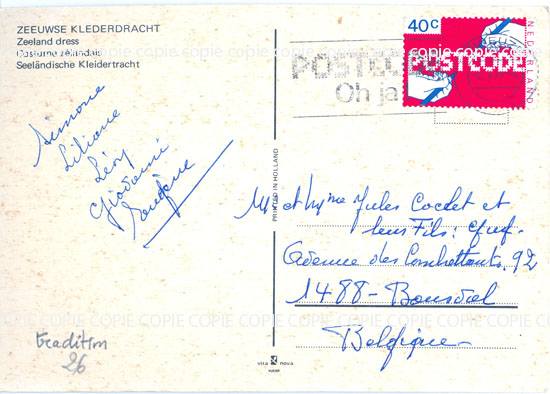 ZEEUWSE KLEDERDRACHT
Zeeland dress
Costume zélandais
Seeländische Kleidertracht
COPIE COPIE COPIE COPIE COPIE COPIE COPIE COPIE COPIE
40c
NEDERLAND
POSTCODE
POSTCODE
Oh ja
Simone
Liliane
Léon
Giovanni
Eugène
PRINTED IN HOLLAND
Mr et Mme Jules Coclet et
leurs Fils:
Avenue des Combattants. 92
1488 - Bousval
COPIE COPIE COPIE COPIE COPIE COPIE COPIE COPIE COPIE
Belgique -
tradition
26
vita nova